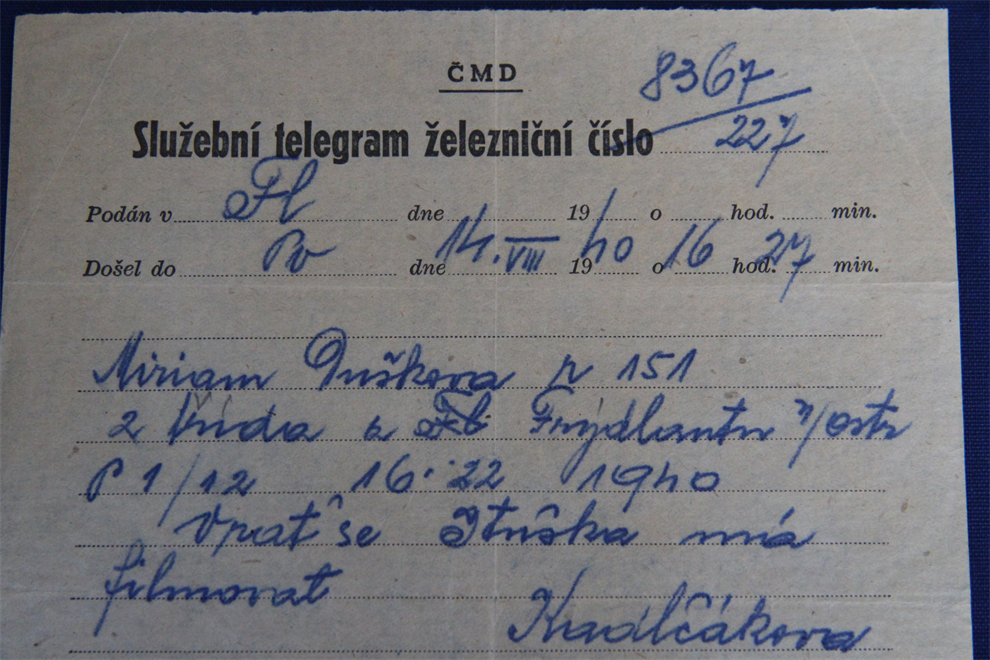 ČMD
8367
Služební telegram železniční číslo 227
Podán v Fl dne 19 o hod. min.
Došel do Pv dne 14. VIII 1940 o 16 hod. 27 min.
Miriam Duškova r 151
2 třída a Frýdlantu n/ostr
P 1/12 16·22 1940
Vrať se Ituška má
filmovat
Kadlčákova